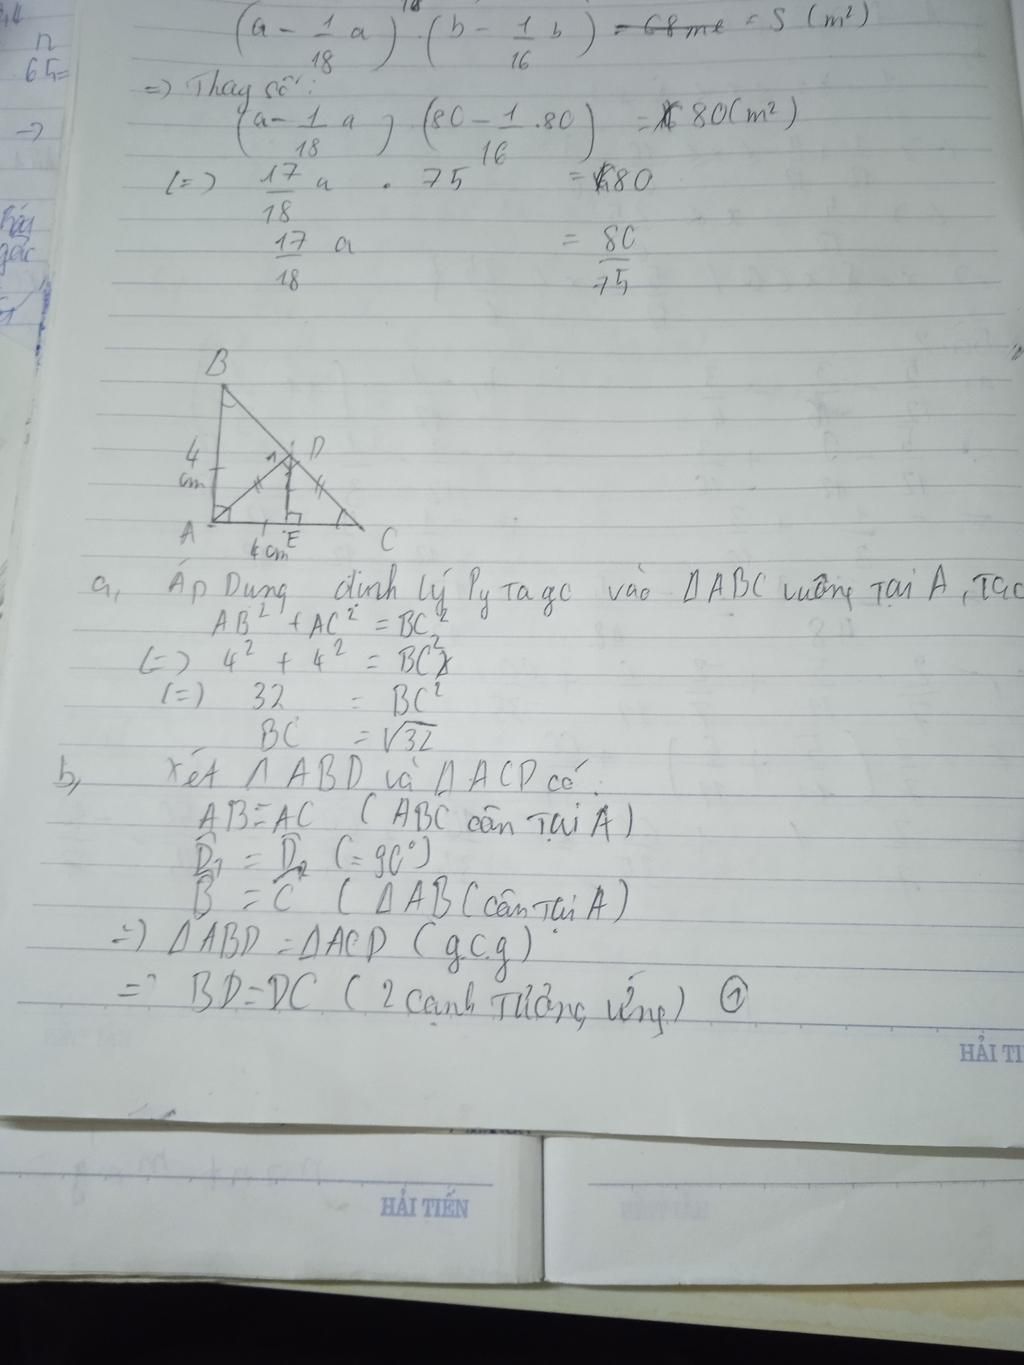 (a - 1/18 a) . (b - 1/16 b) = 68 m² = S (m²)
n
65=
=) Thay số:
(a - 1/18 a) (80 - 1/16 .80) = 80(m²)
(=) 17/18 a . 75 = 80
17/18 a = 80/75
B
4 cm
1 D
A E C
4 cm
a, Áp Dụng định lý Pytago vào ΔABC vuông Tại A, Ta có
AB² + AC² = BC²
(=) 4² + 4² = BC²
(=) 32 = BC²
BC = √32
b, xét ΔABD và ΔACD có:
AB = AC (ABC cân Tại A)
D̂₁ = D̂₂ (= 90°)
B̂ = Ĉ (ΔABC cân Tại A)
=) ΔABD = ΔACD (g.c.g)
=) BD = DC (2 cạnh Tương ứng) ①
HẢI TI
HẢI TIẾN